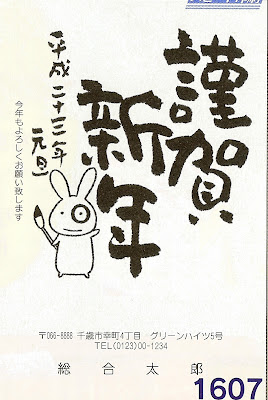 謹賀
新年
平成二十三年
元旦
今年もよろしくお願い致します
〒066-8888 千歳市幸町4丁目 グリーンハイツ5号
TEL(0123)00-1234
総合太郎
1607